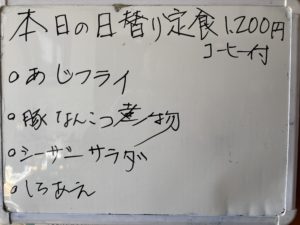 本日の日替り定食1.200円
コーヒー付
○あじフライ
○豚なんこつ煮物
○シーザーサラダ
○しらあえ